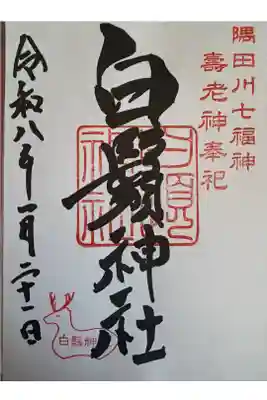 隅田川七福神
壽老神奉祀
白鬚神社
令和八年一月二十一日
白鬚神社
白鬚神